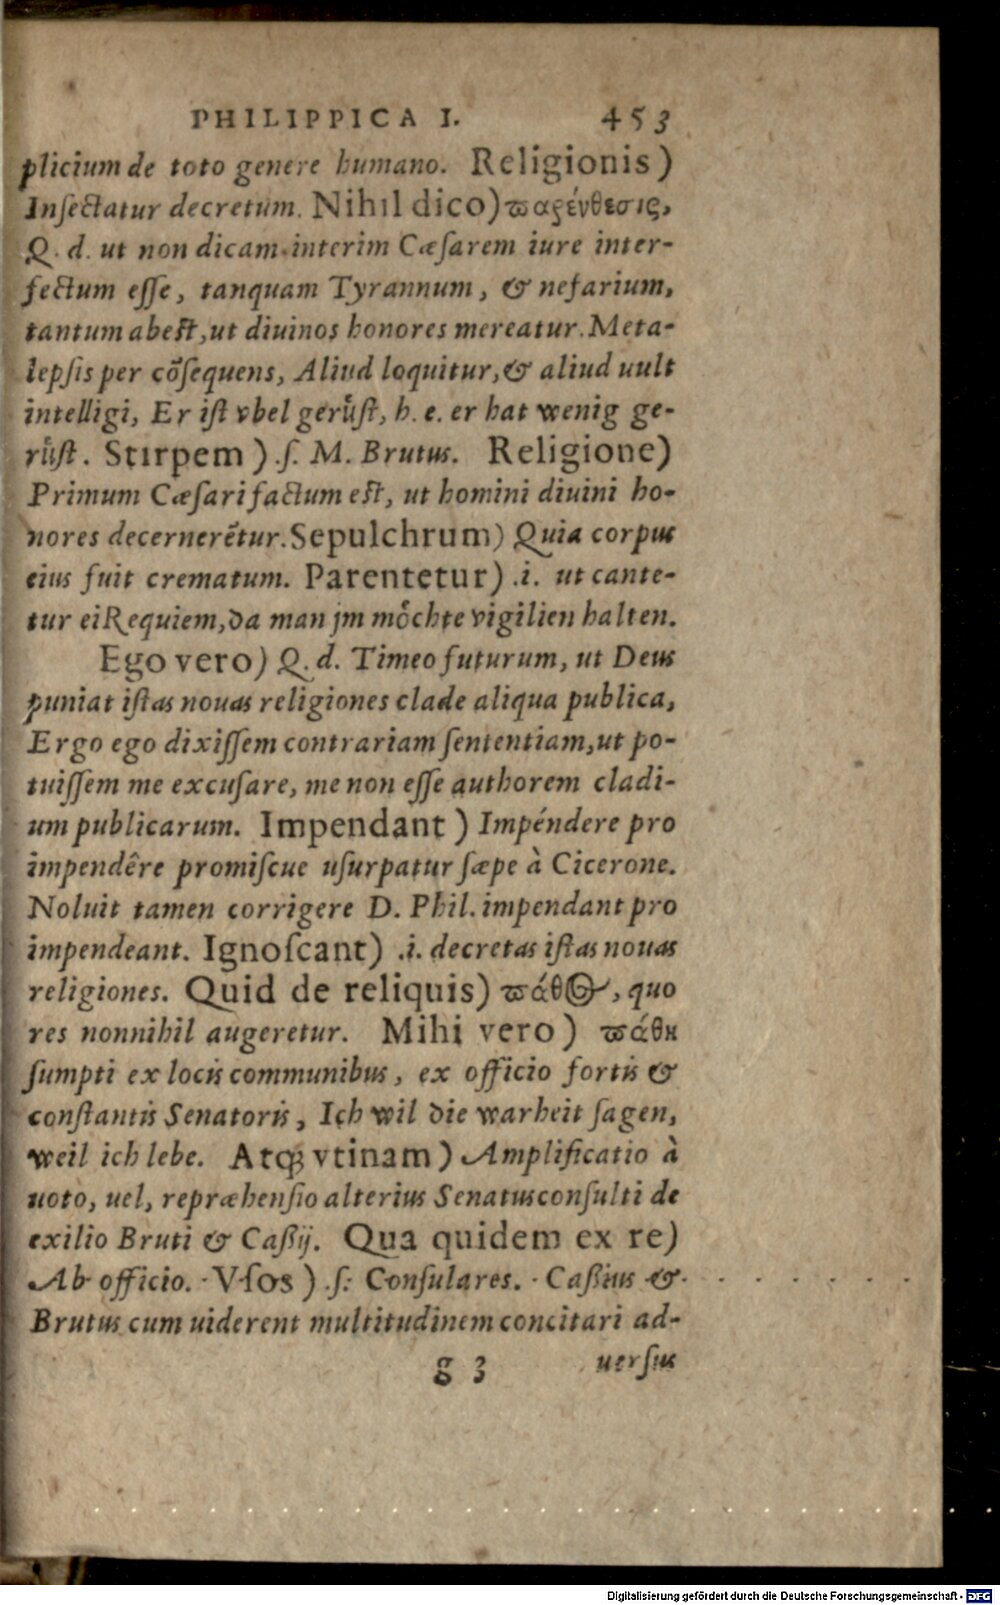 PHILIPPICA I. 453
plicium de toto genere humano. Religionis)
Inſectatur decretum. Nihil dico) ϖαρένθεσις,
Q. d. ut non dicam interim Cæſarem iure inter-
fectum eſſe, tanquam Tyrannum, & nefarium,
tantum abeſt, ut diuinos honores mereatur. Meta-
lepſis per cõſequens, Aliud loquitur, & aliud uult
intelligi, Er iſt vbel gerůſt, h. e. er hat wenig ge-
růſt. Stirpem) .ſ. M. Brutus. Religione)
Primum Cæſari factum eſt, ut homini diuini ho-
nores decernerẽtur. Sepulchrum) Quia corpus
eius fuit crematum. Parentetur) .i. ut cante-
tur ei Requiem, da man jm moͤchte vigilien halten.
Ego vero) Q. d. Timeo futurum, ut Deus
puniat iſtas nouas religiones clade aliqua publica,
Ergo ego dixiſſem contrariam ſententiam, ut po-
tuiſſem me excuſare, me non eſſe authorem cladi-
um publicarum. Impendant) Impéndere pro
impendêre promiſcue uſurpatur ſæpe à Cicerone.
Noluit tamen corrigere D. Phil. impendant pro
impendeant. Ignoſcant) .i. decretas iſtas nouas
religiones. Quid de reliquis) ϖάθος, quo
res nonnihil augeretur. Mihi vero) ϖάθη
ſumpti ex locis communibus, ex officio fortis &
conſtantis Senatoris, Ich wil die warheit ſagen,
weil ich lebe. Atq; vtinam) Amplificatio à
uoto, uel, repræhenſio alterius Senatusconſulti de
exilio Bruti & Caßij. Qua quidem ex re)
Ab officio. Vſos) .ſ: Conſulares. Caßius &
Brutus cum uiderent multitudinem concitari ad-
g 3 uerſus
Digitalisierung gefördert durch die Deutsche Forschungsgemeinschaft - DFG